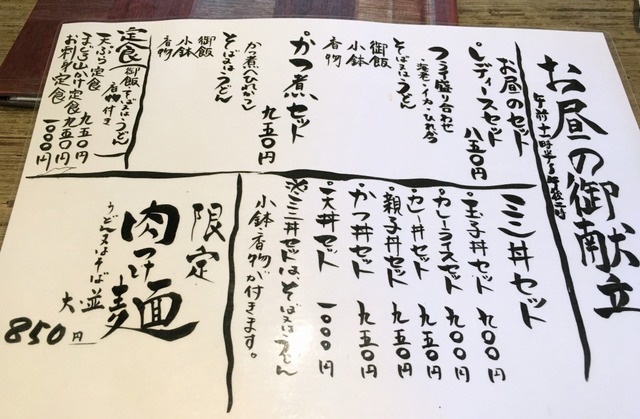 お昼の御献立
お昼のセット
・レディースセット 八五〇円
フライ盛り合わせ
そば又はうどん
御飯
小鉢
香物
・かつ煮セット 九五〇円
かつ煮(ひれかつ)
そば又はうどん
御飯
小鉢
香物
定食
御飯 そば又はうどん
香物付き
天ぷら定食 九五〇円
まぐろ山かけ定食 九五〇円
お刺身定食 一〇〇〇円
ミニ丼セット
・玉子丼セット 九〇〇円
・カレーライスセット 九〇〇円
・カレー丼セット 九五〇円
・親子丼セット 九五〇円
・かつ丼セット 九五〇円
・天丼セット 一〇〇〇円
※ミニ丼セットは、そば又はうどん
小鉢・香物が付きます。
限定
肉つけ麺
うどん又はそば
大・並
850円